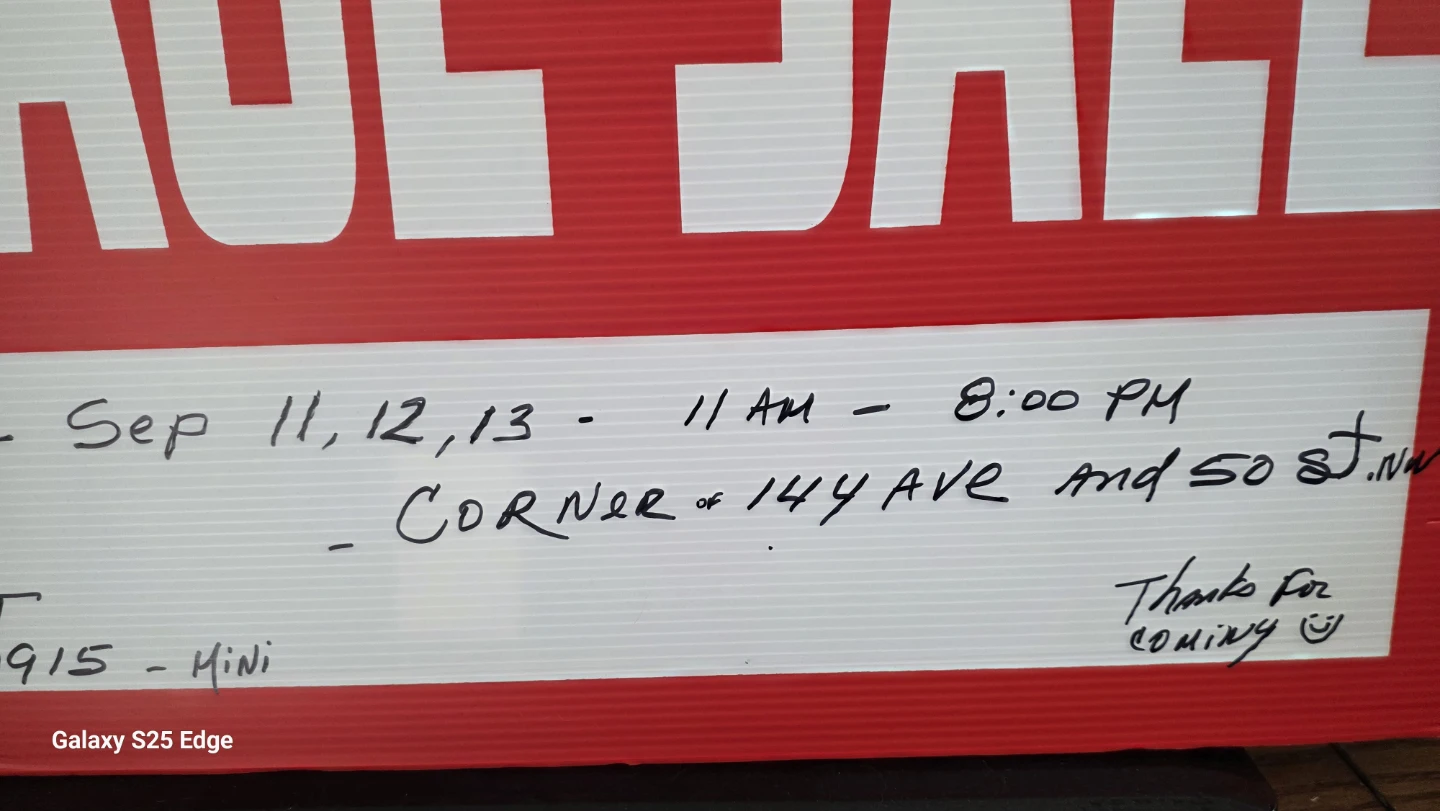 AGE SALE
- Sep 11, 12, 13 - 11 AM - 8:00 PM
- CORNeR of 144 AVe And 50 St. NW
Thanks For
COMiNg ☺
915 - MiNi
Galaxy S25 Edge